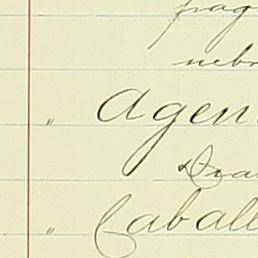 frag
nebr
" Agen
Dra
" Caball